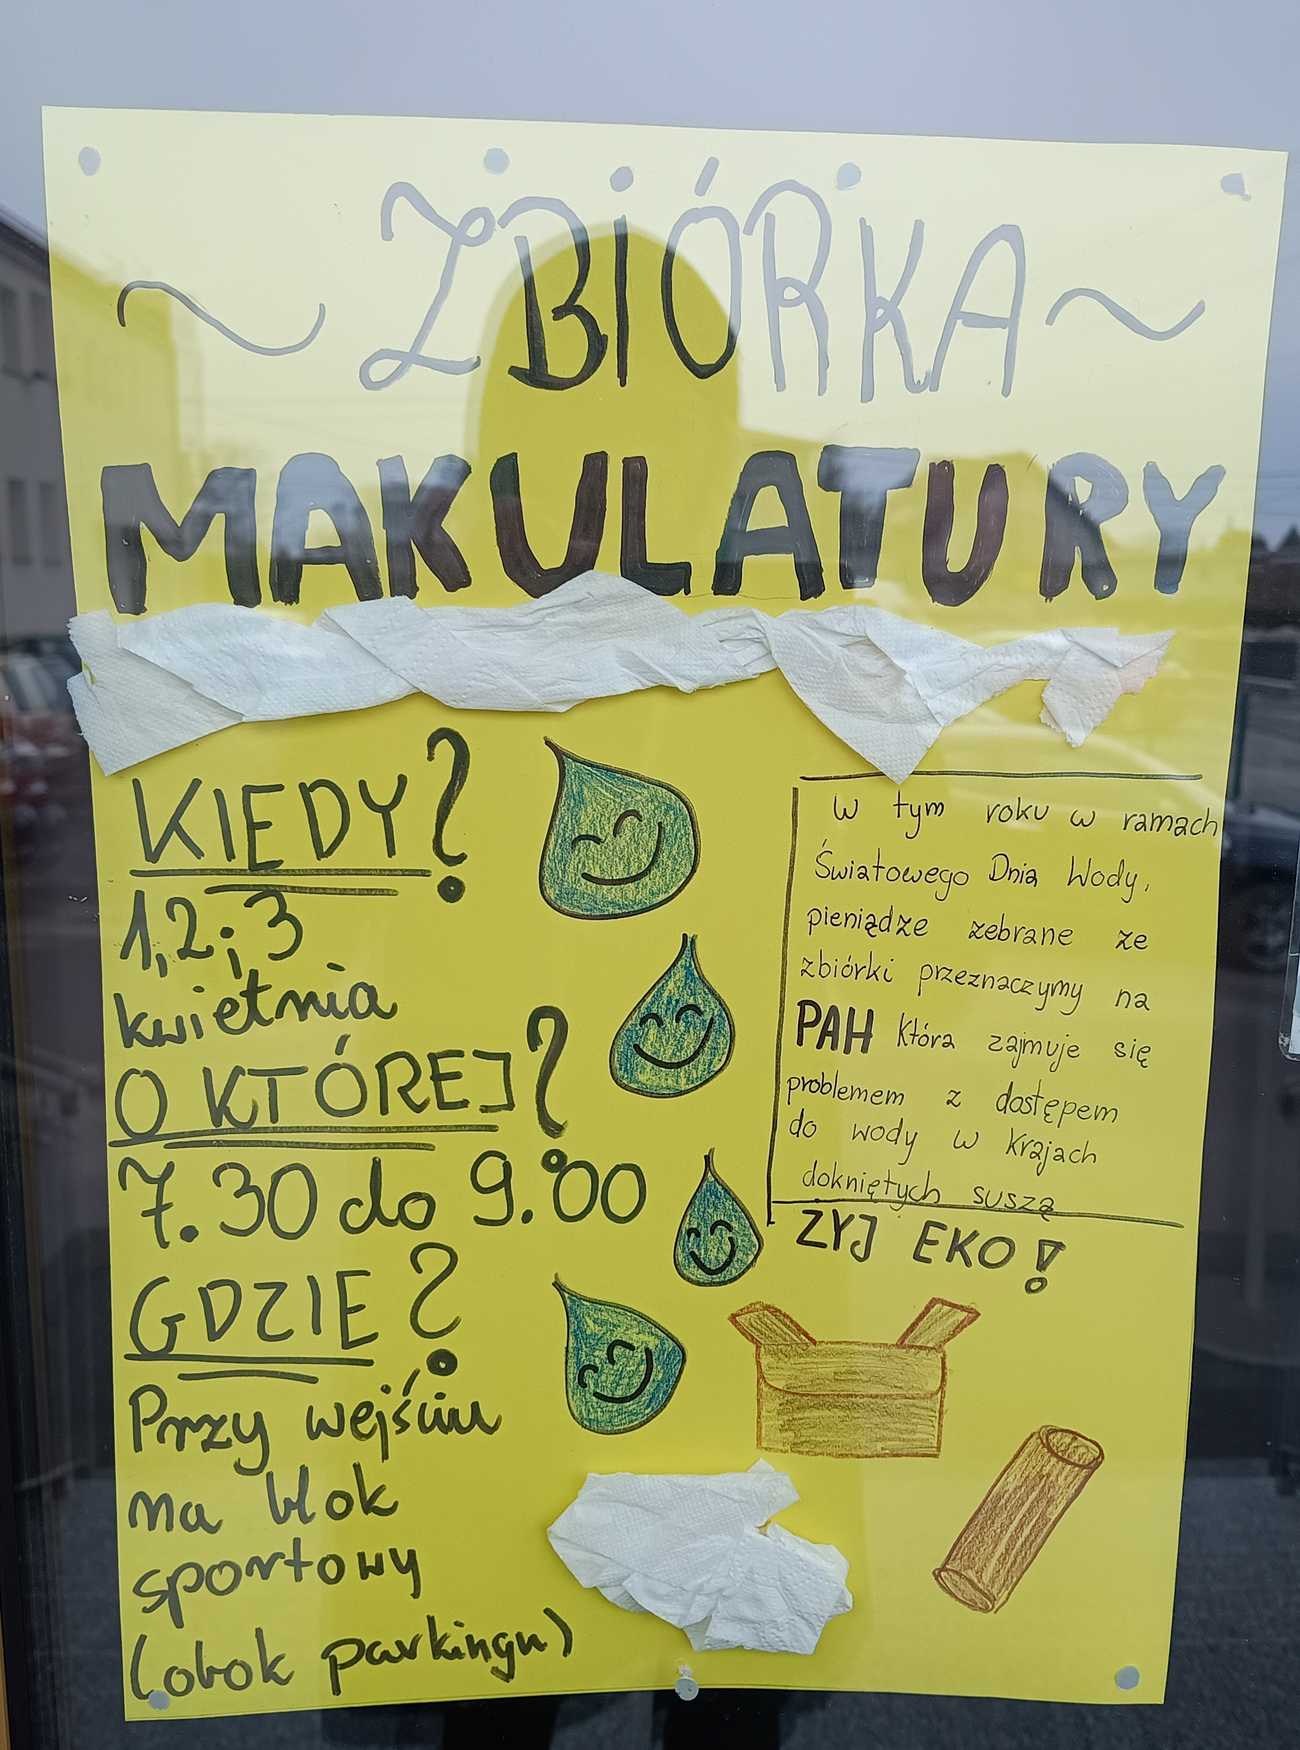 ~ ZBIÓRKA ~
MAKULATURY
KIEDY?
1,2 i 3
kwietnia
O KTÓREJ?
7.30 do 9.00
GDZIE?
Przy wejściu
na blok
sportowy
(obok parkingu)
W tym roku w ramach
Światowego Dnia Wody,
pieniądze zebrane ze
zbiórki przeznaczymy na
PAH która zajmuje się
problemem z dostępem
do wody w krajach
dokniętych suszą
ZYJ EKO!